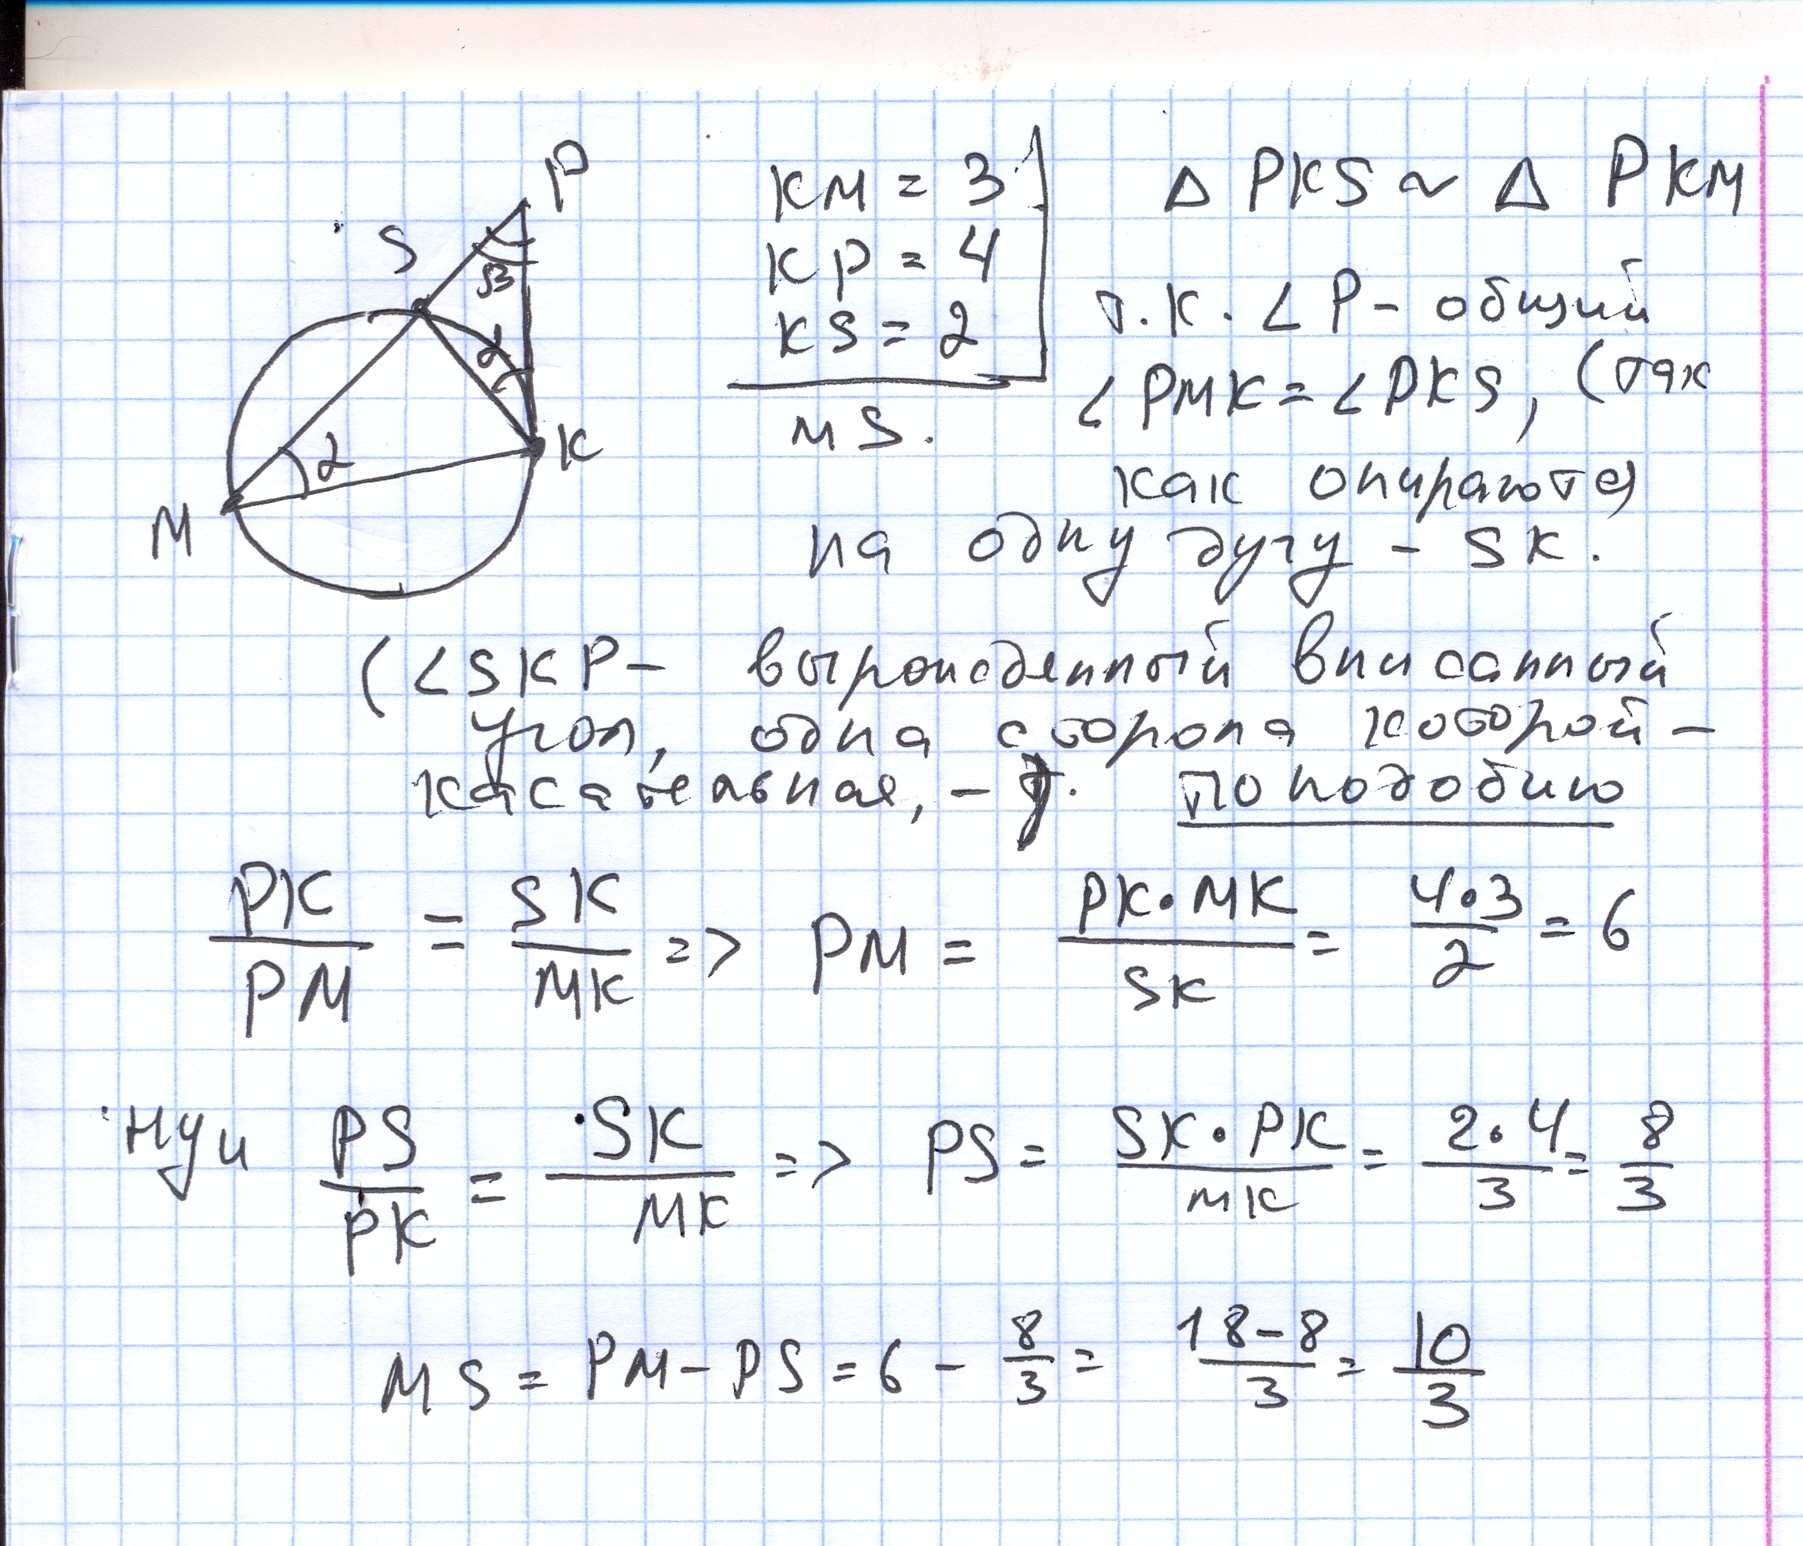 P
S
β
α
K
α
M
KM = 3
KP = 4
KS = 2
MS.
Δ PKS ~ Δ PKM
т.к. ∠P - общий
∠PMK = ∠PKS, (так
как опираются
на одну дугу - SK.
(∠SKP - вырожденный вписанный
угол, одна сторона которой -
касательная, - . По подобию
PK/PM = SK/MK => PM = PK·MK/SK = 4·3/2 = 6
Ну и PS/PK = SK/MK => PS = SK·PK/MK = 2·4/3 = 8/3
MS = PM - PS = 6 - 8/3 = 18-8/3 = 10/3